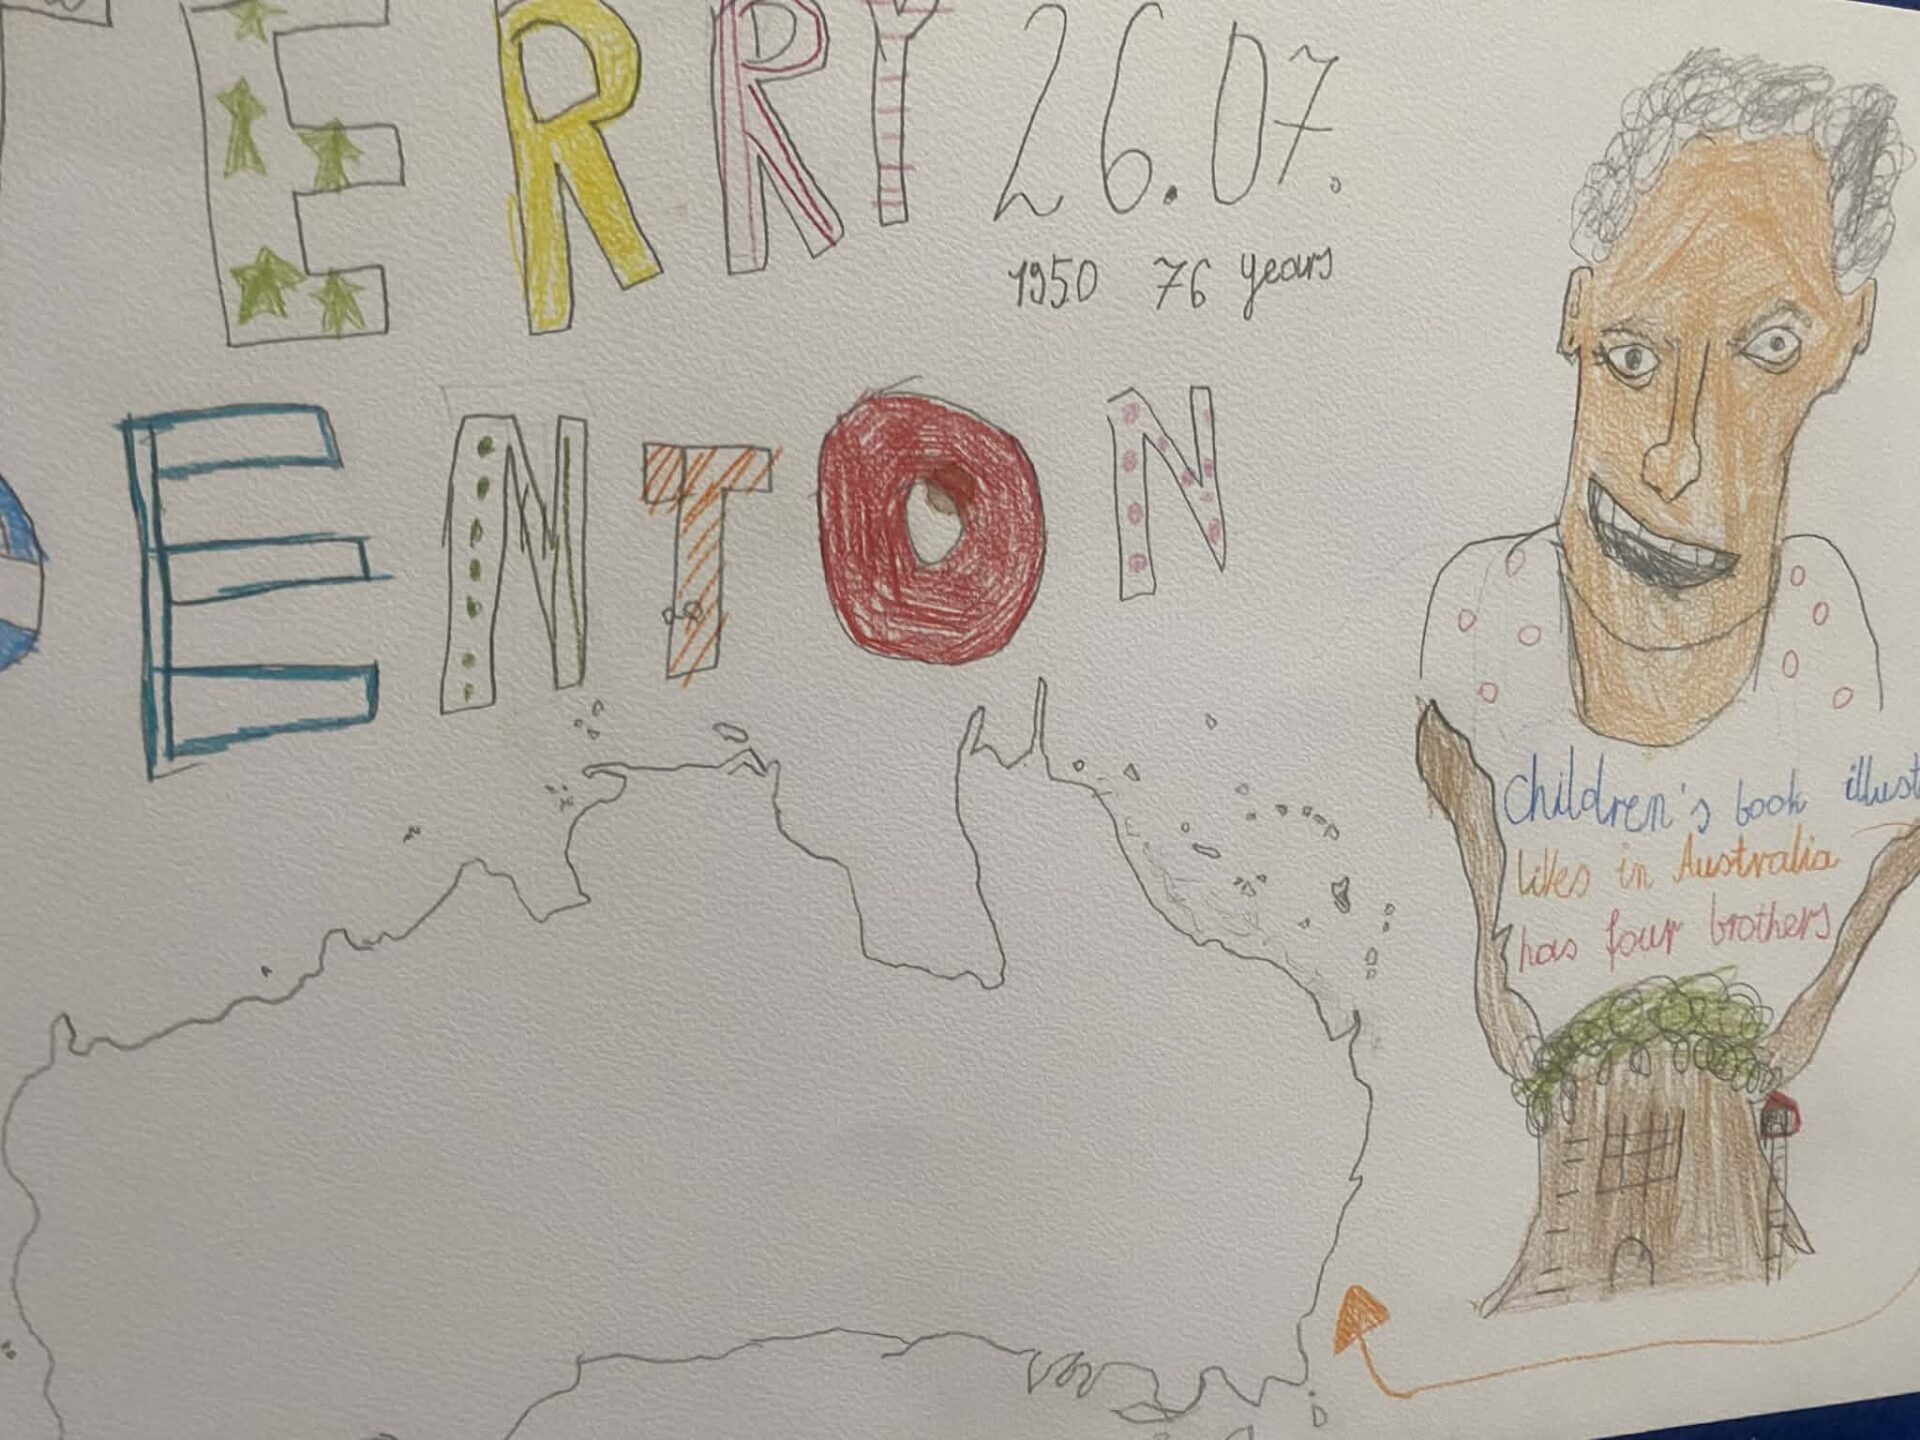 TERRY 26.07.
1950 76 years
DENTON
children's book illust
lives in Australia
has four brothers